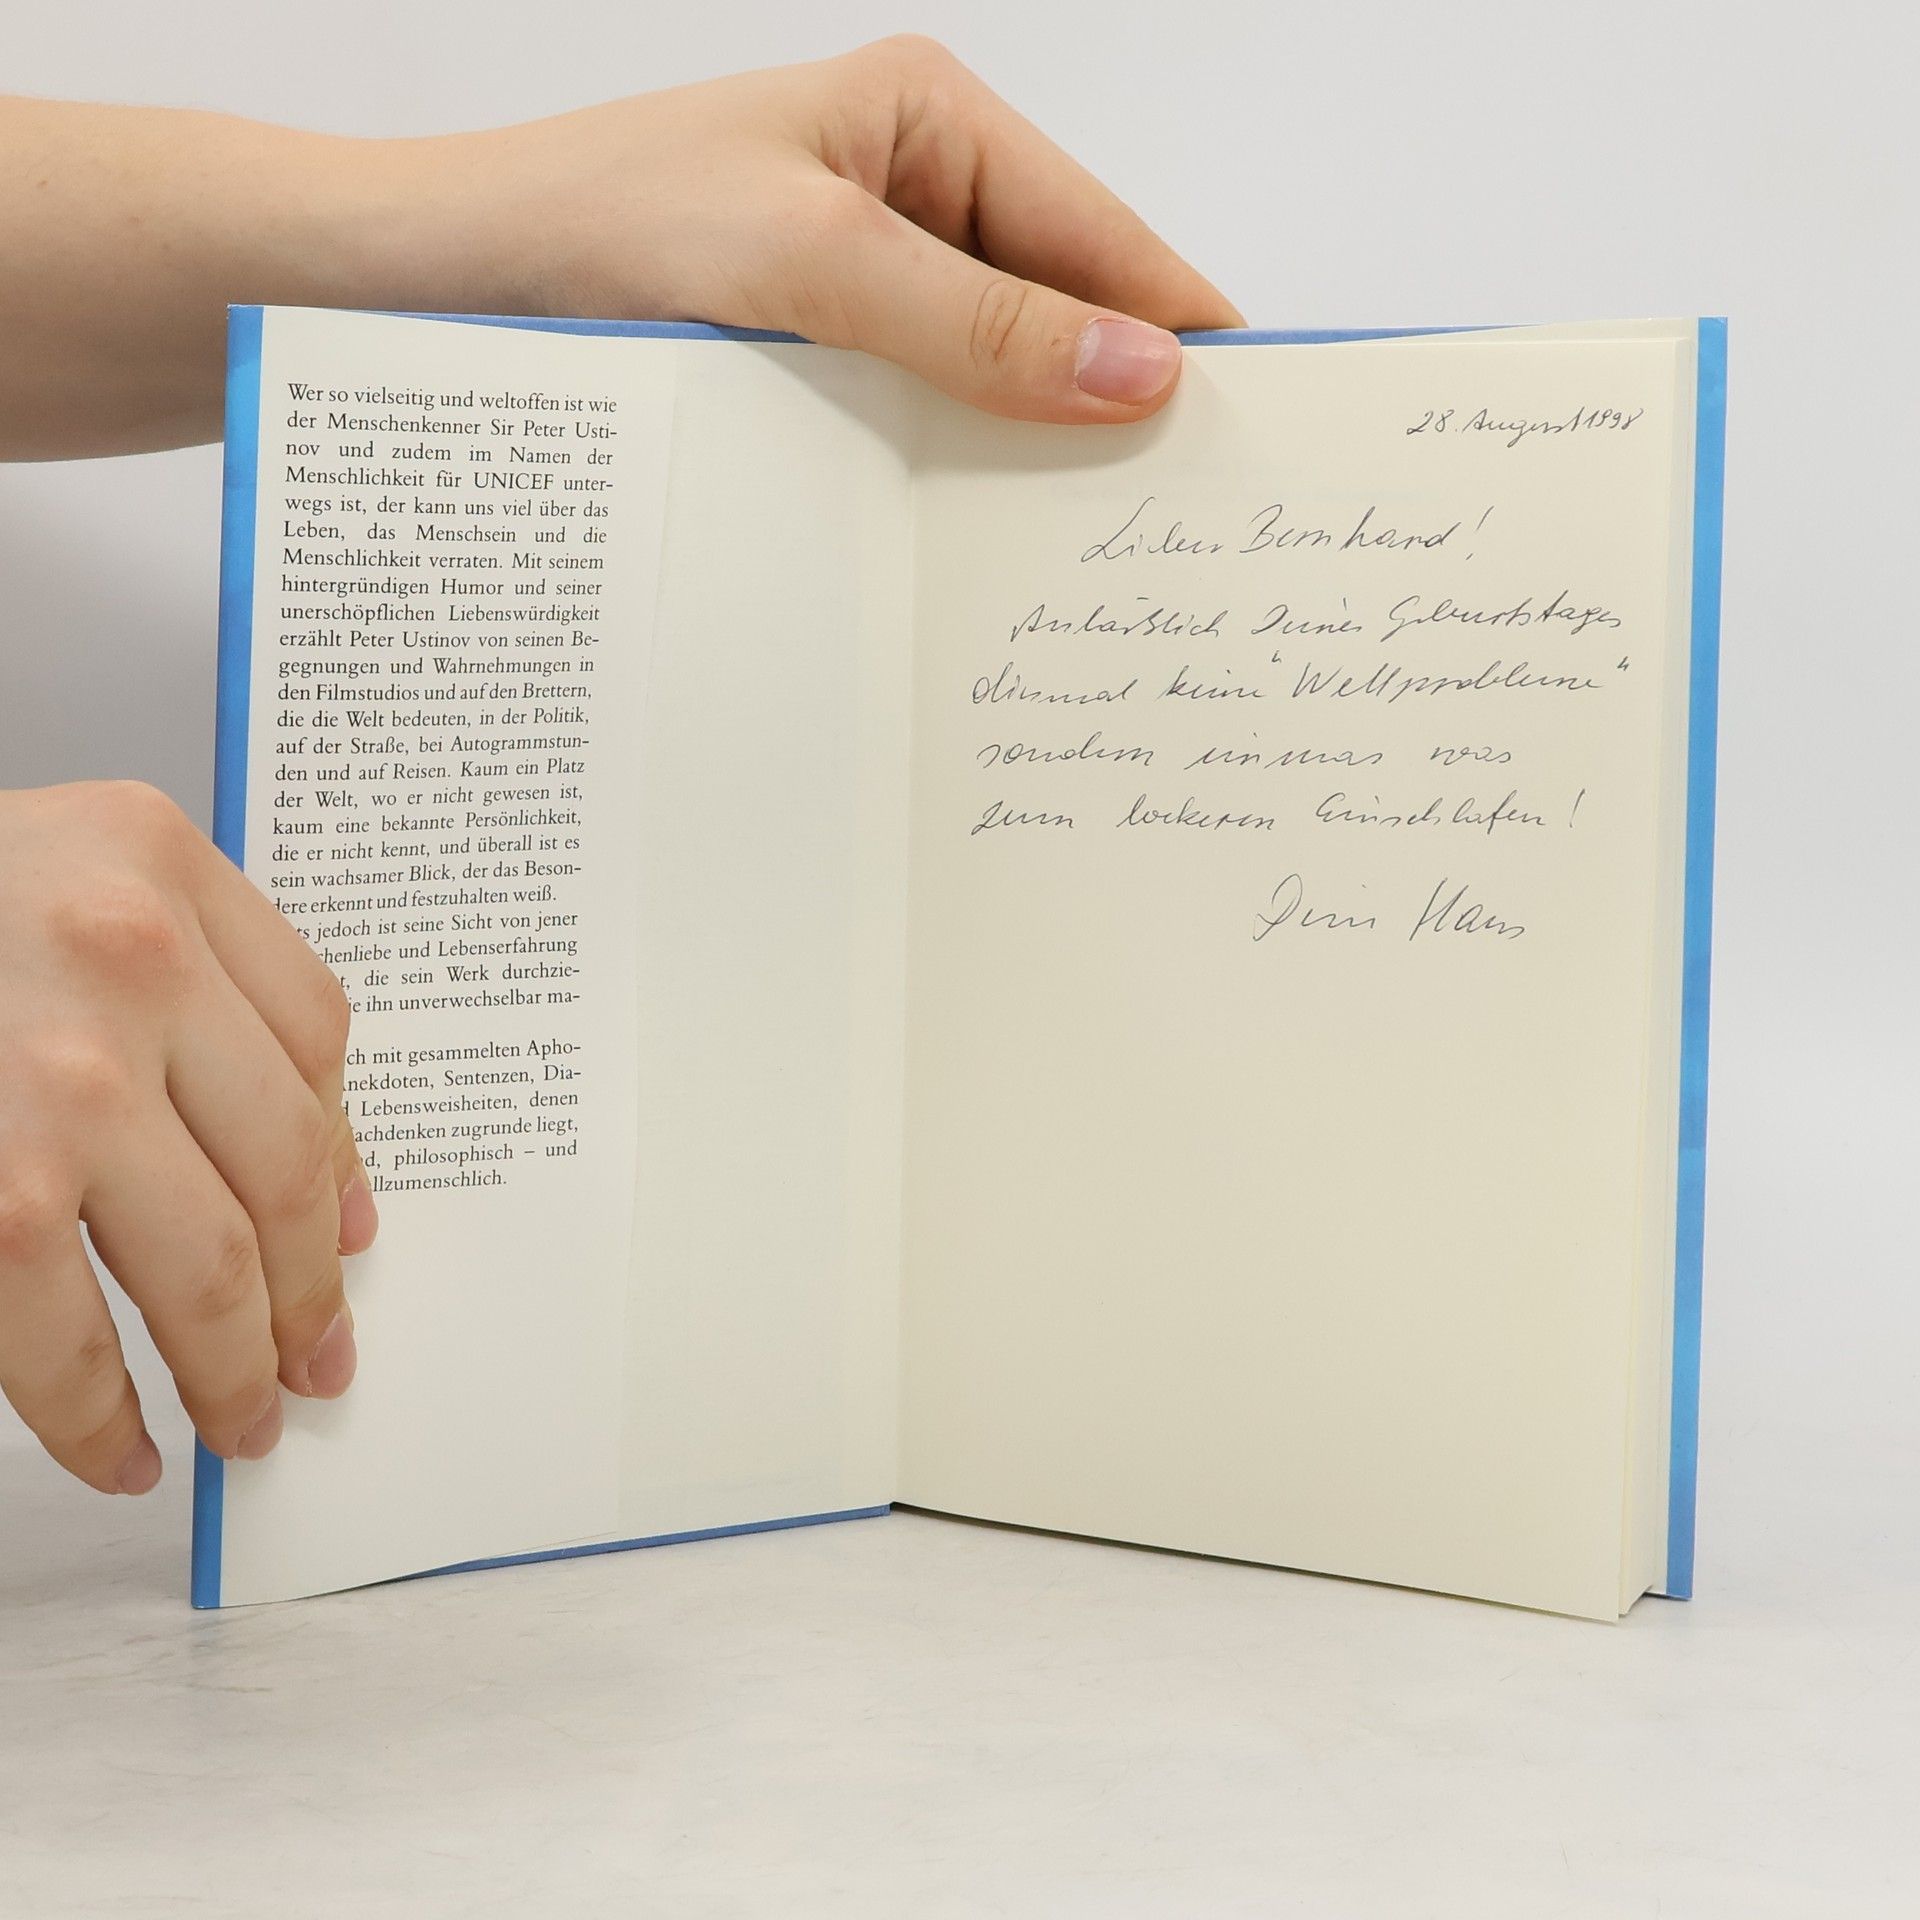 Wer so vielseitig und weltoffen ist wie
der Menschenkenner Sir Peter Usti-
nov und zudem im Namen der
Menschlichkeit für UNICEF unter-
wegs ist, der kann uns viel über das
Leben, das Menschsein und die
Menschlichkeit verraten. Mit seinem
hintergründigen Humor und seiner
unerschöpflichen Liebenswürdigkeit
erzählt Peter Ustinov von seinen Be-
gegnungen und Wahrnehmungen in
den Filmstudios und auf den Brettern,
die die Welt bedeuten, in der Politik,
auf der Straße, bei Autogrammstun-
den und auf Reisen. Kaum ein Platz
der Welt, wo er nicht gewesen ist,
kaum eine bekannte Persönlichkeit,
die er nicht kennt, und überall ist es
sein wachsamer Blick, der das Beson-
dere erkennt und festzuhalten weiß.
jedoch ist seine Sicht von jener
chenliebe und Lebenserfahrung
t, die sein Werk durchzie-
ie ihn unverwechselbar ma-
ch mit gesammelten Apho-
nekdoten, Sentenzen, Dia-
d Lebensweisheiten, denen
achdenken zugrunde liegt,
d, philosophisch – und
llzumenschlich.
28. August 1998
Lieber Bernhard!
Anläßlich Deines Geburtstages
diesmal keine "Weltprobleme"
sondern einmas was
zum lockeren Einschlafen!
Dein Hans